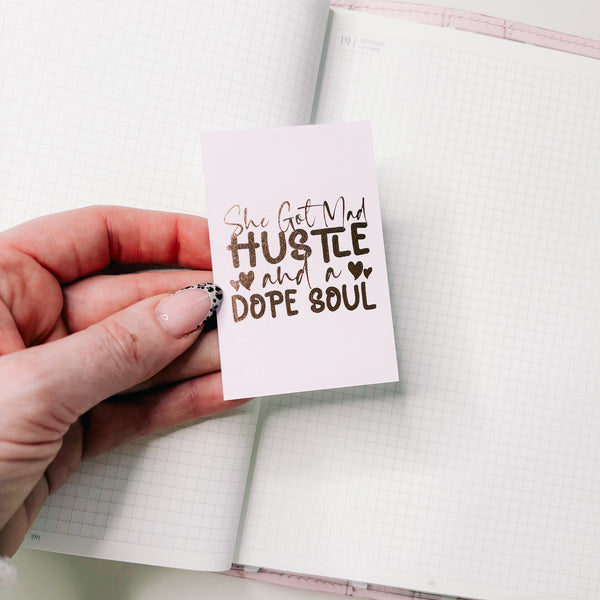 19 SUNDAY
She Got Mad
HUSTLE
and a
DOPE SOUL
291